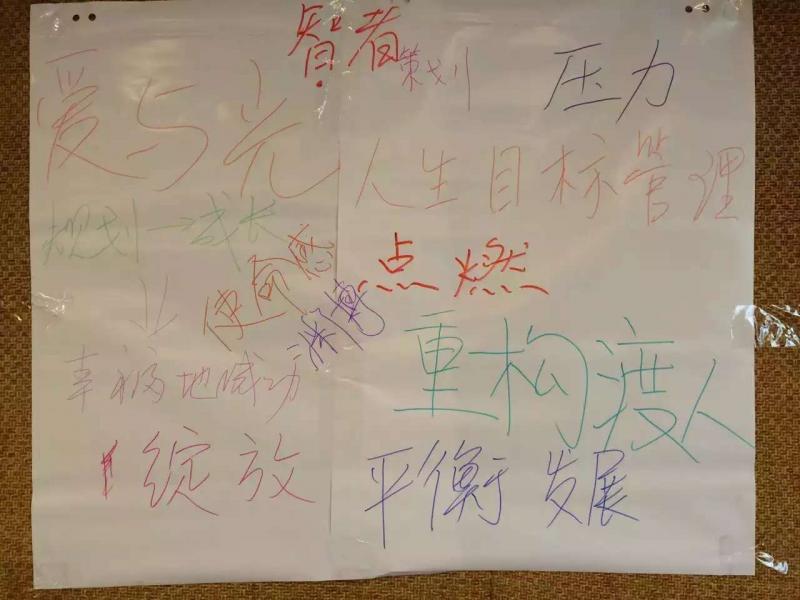 智者
策划
压力
爱与光
人生目标管理
规划一成长
使命感
点燃
渊博
重构 渡人
幸福地成功
绽放
平衡 发展